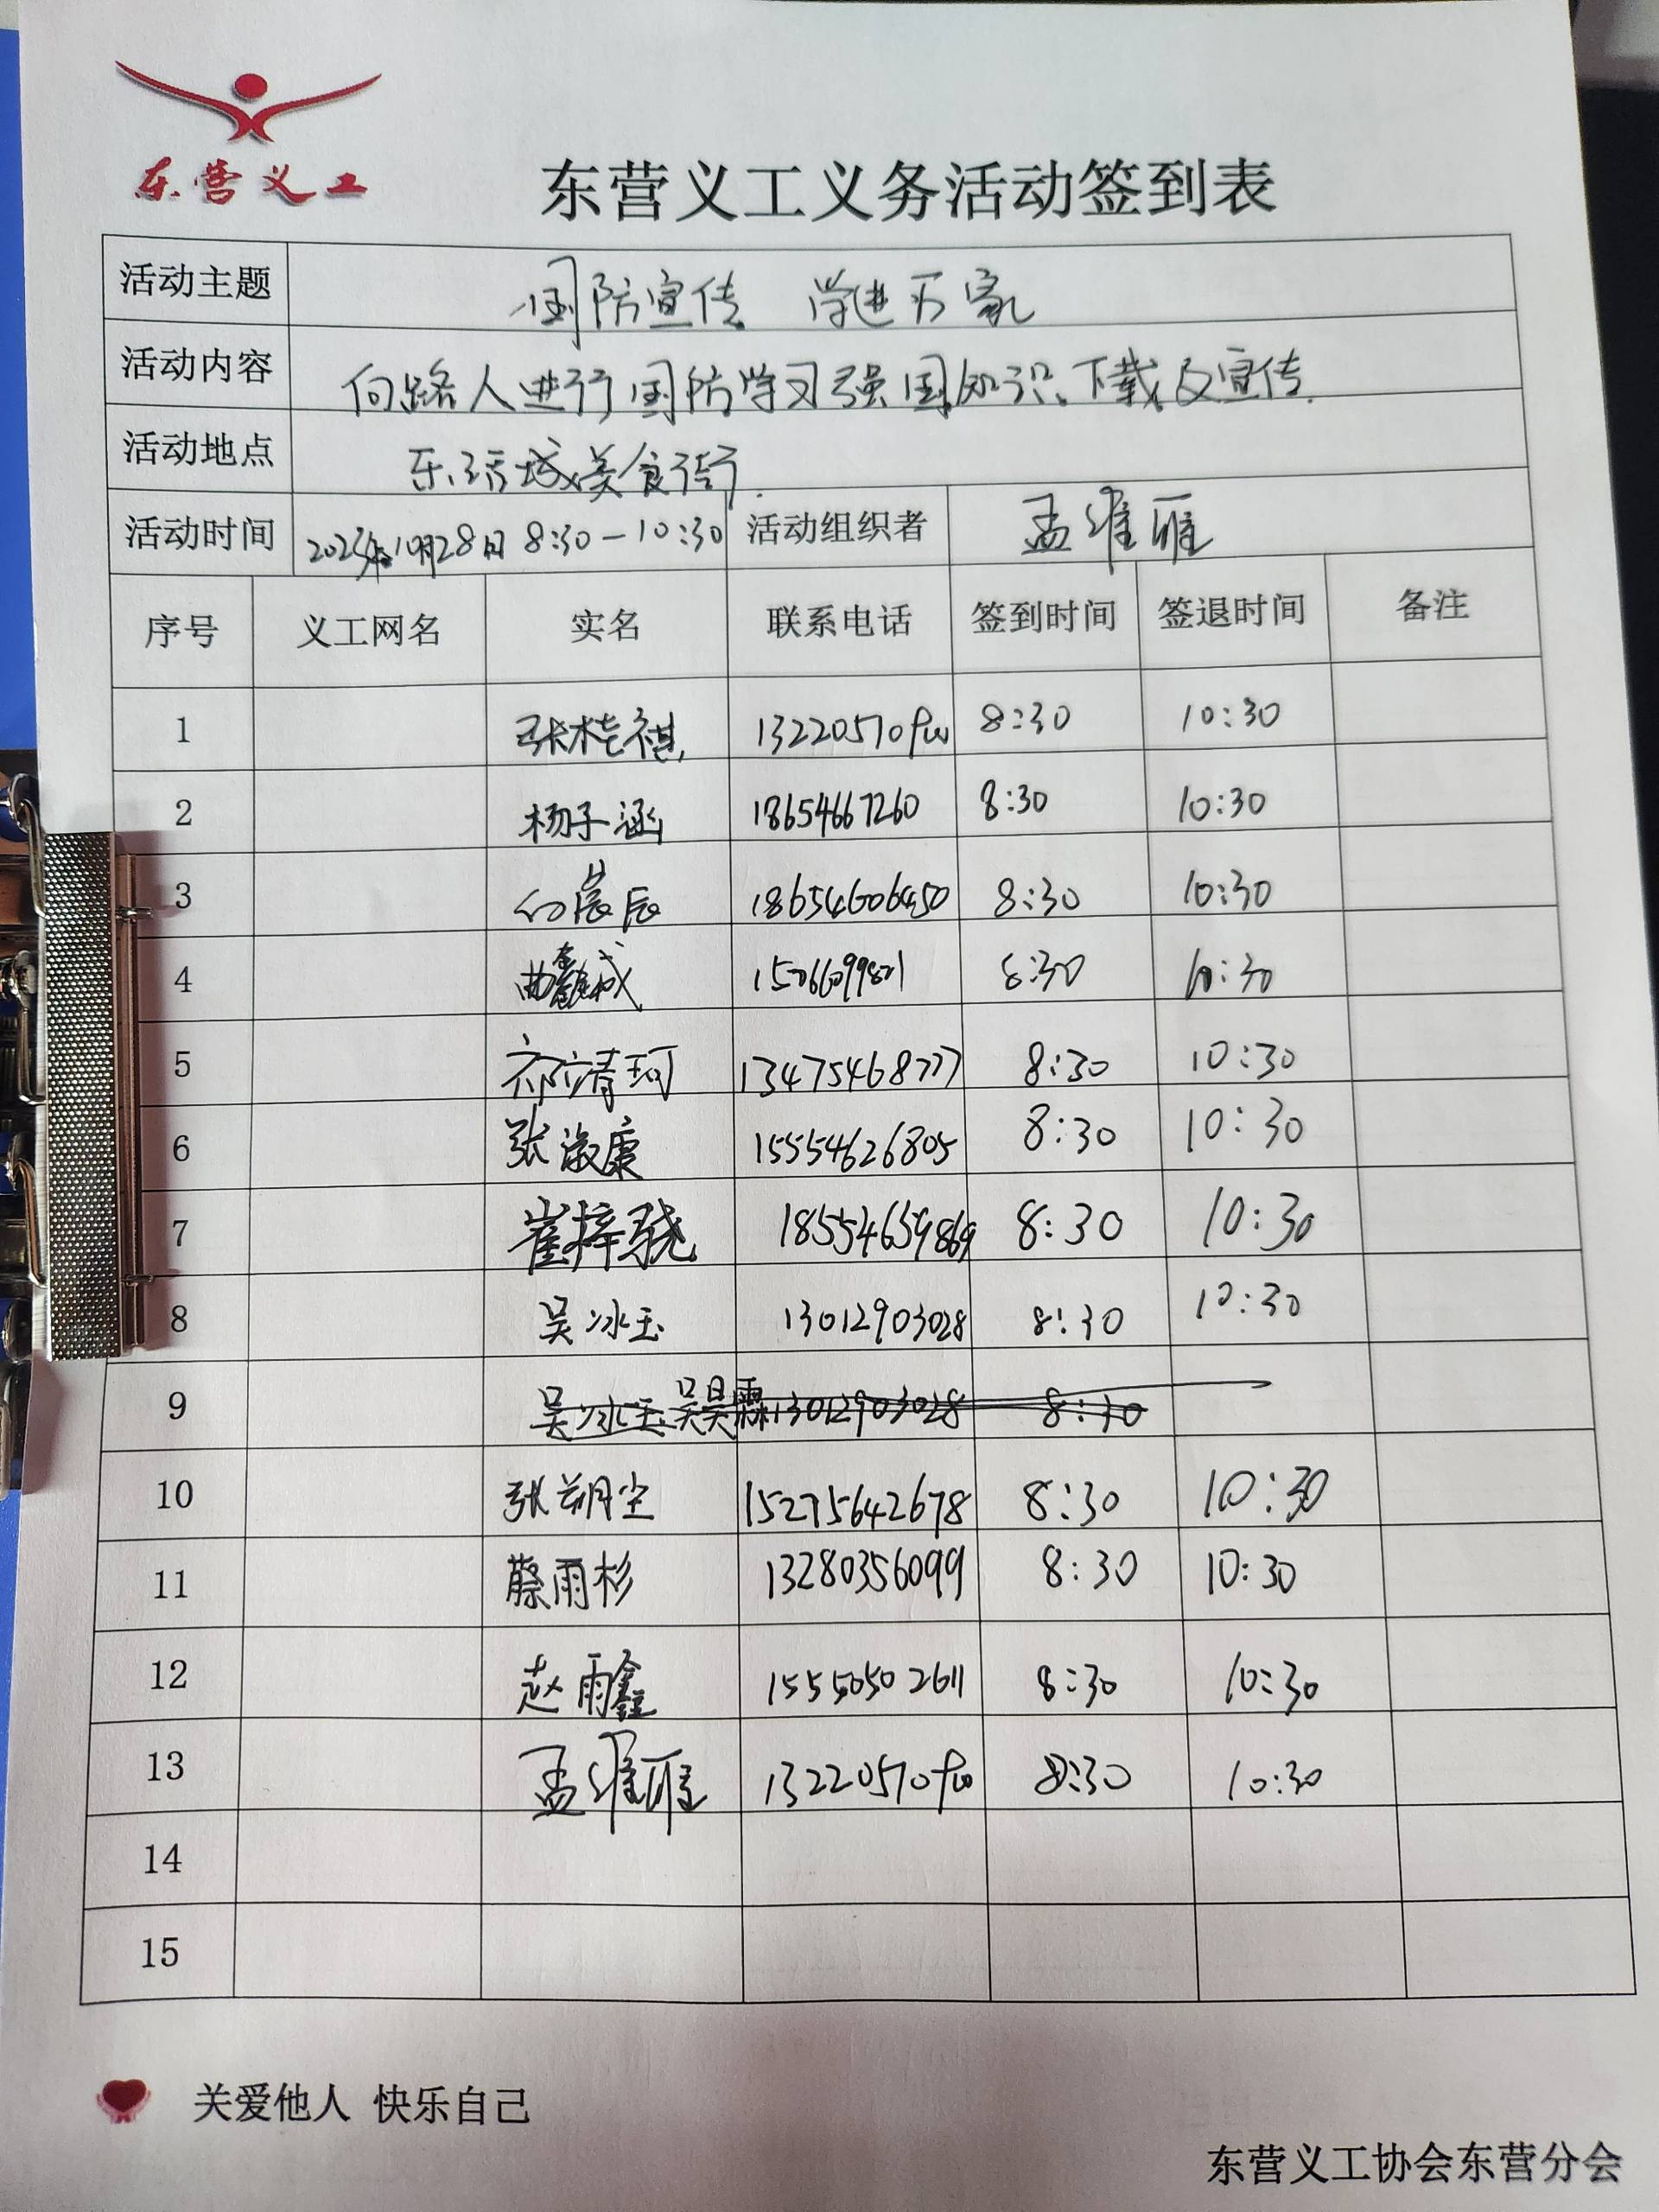 东营义工
东营义工义务活动签到表
活动主题 国防宣传 学进万家
活动内容 向路人进行国防学习强国知识、下载及宣传.
活动地点 乐活城美食街.
活动时间 2023年10月28日 8:30-10:30 活动组织者 孟维雁
序号 义工网名 实名 联系电话 签到时间 签退时间 备注
1 张桂祺 8:30 10:30
2 杨子涵 18654667260 8:30 10:30
3 辰 18654606450 8:30 10:30
4 曲鑫成 8:30 10:30
5 祁靖珂 13475468777 8:30 10:30
6 张淑康 15554626805 8:30 10:30
7 崔梓骁 18554659869 8:30 10:30
8 吴冰玉 13012903028 8:30 10:30
9 吴冰玉 吴昊霖 13012903028 8:30
10 张朔尘 15275642678 8:30 10:30
11 蔡雨杉 13280356099 8:30 10:30
12 赵雨鑫 15550502611 8:30 10:30
13 孟维雁 8:30 10:30
14
15
关爱他人 快乐自己
东营义工协会东营分会